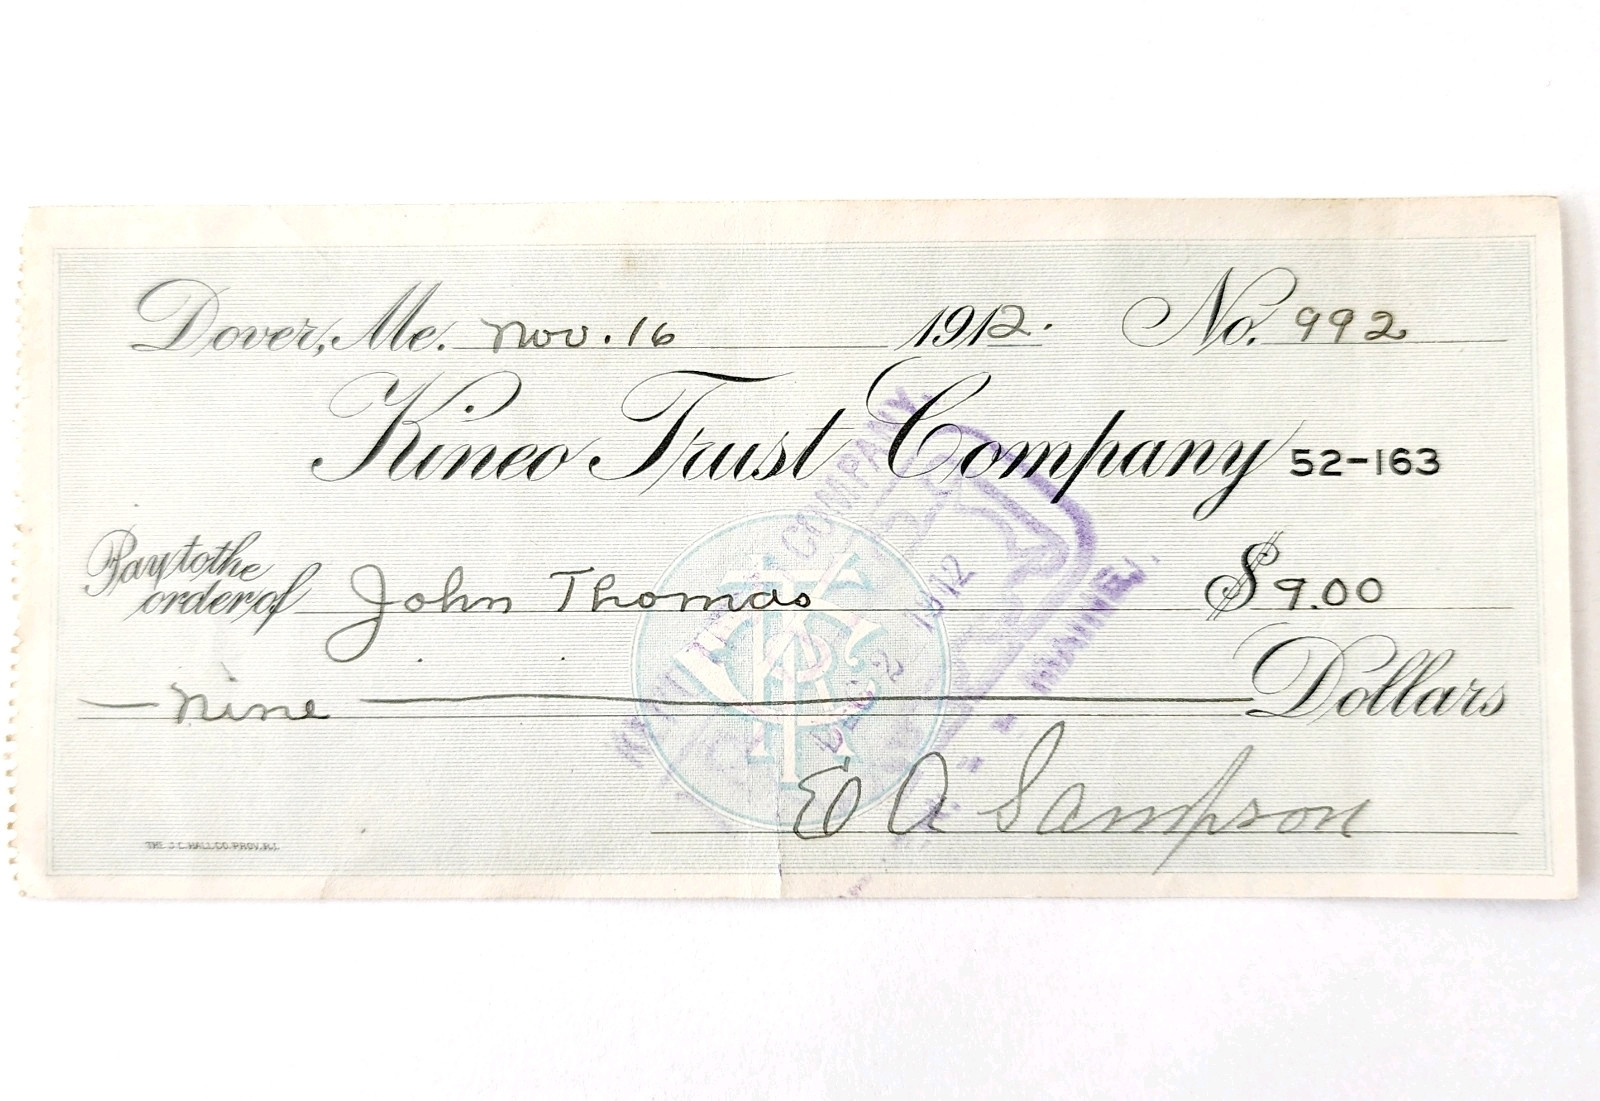 Dover, Me. Nov. 16 1912. No. 992
Kineo Trust Company 52-163
Pay to the
order of John Thomas $ 9.00
Nine Dollars
E A Sampson
THE J.C. HALL CO. PROV. R.I.
COMPANY,
DEC 2 1912
MAINE.